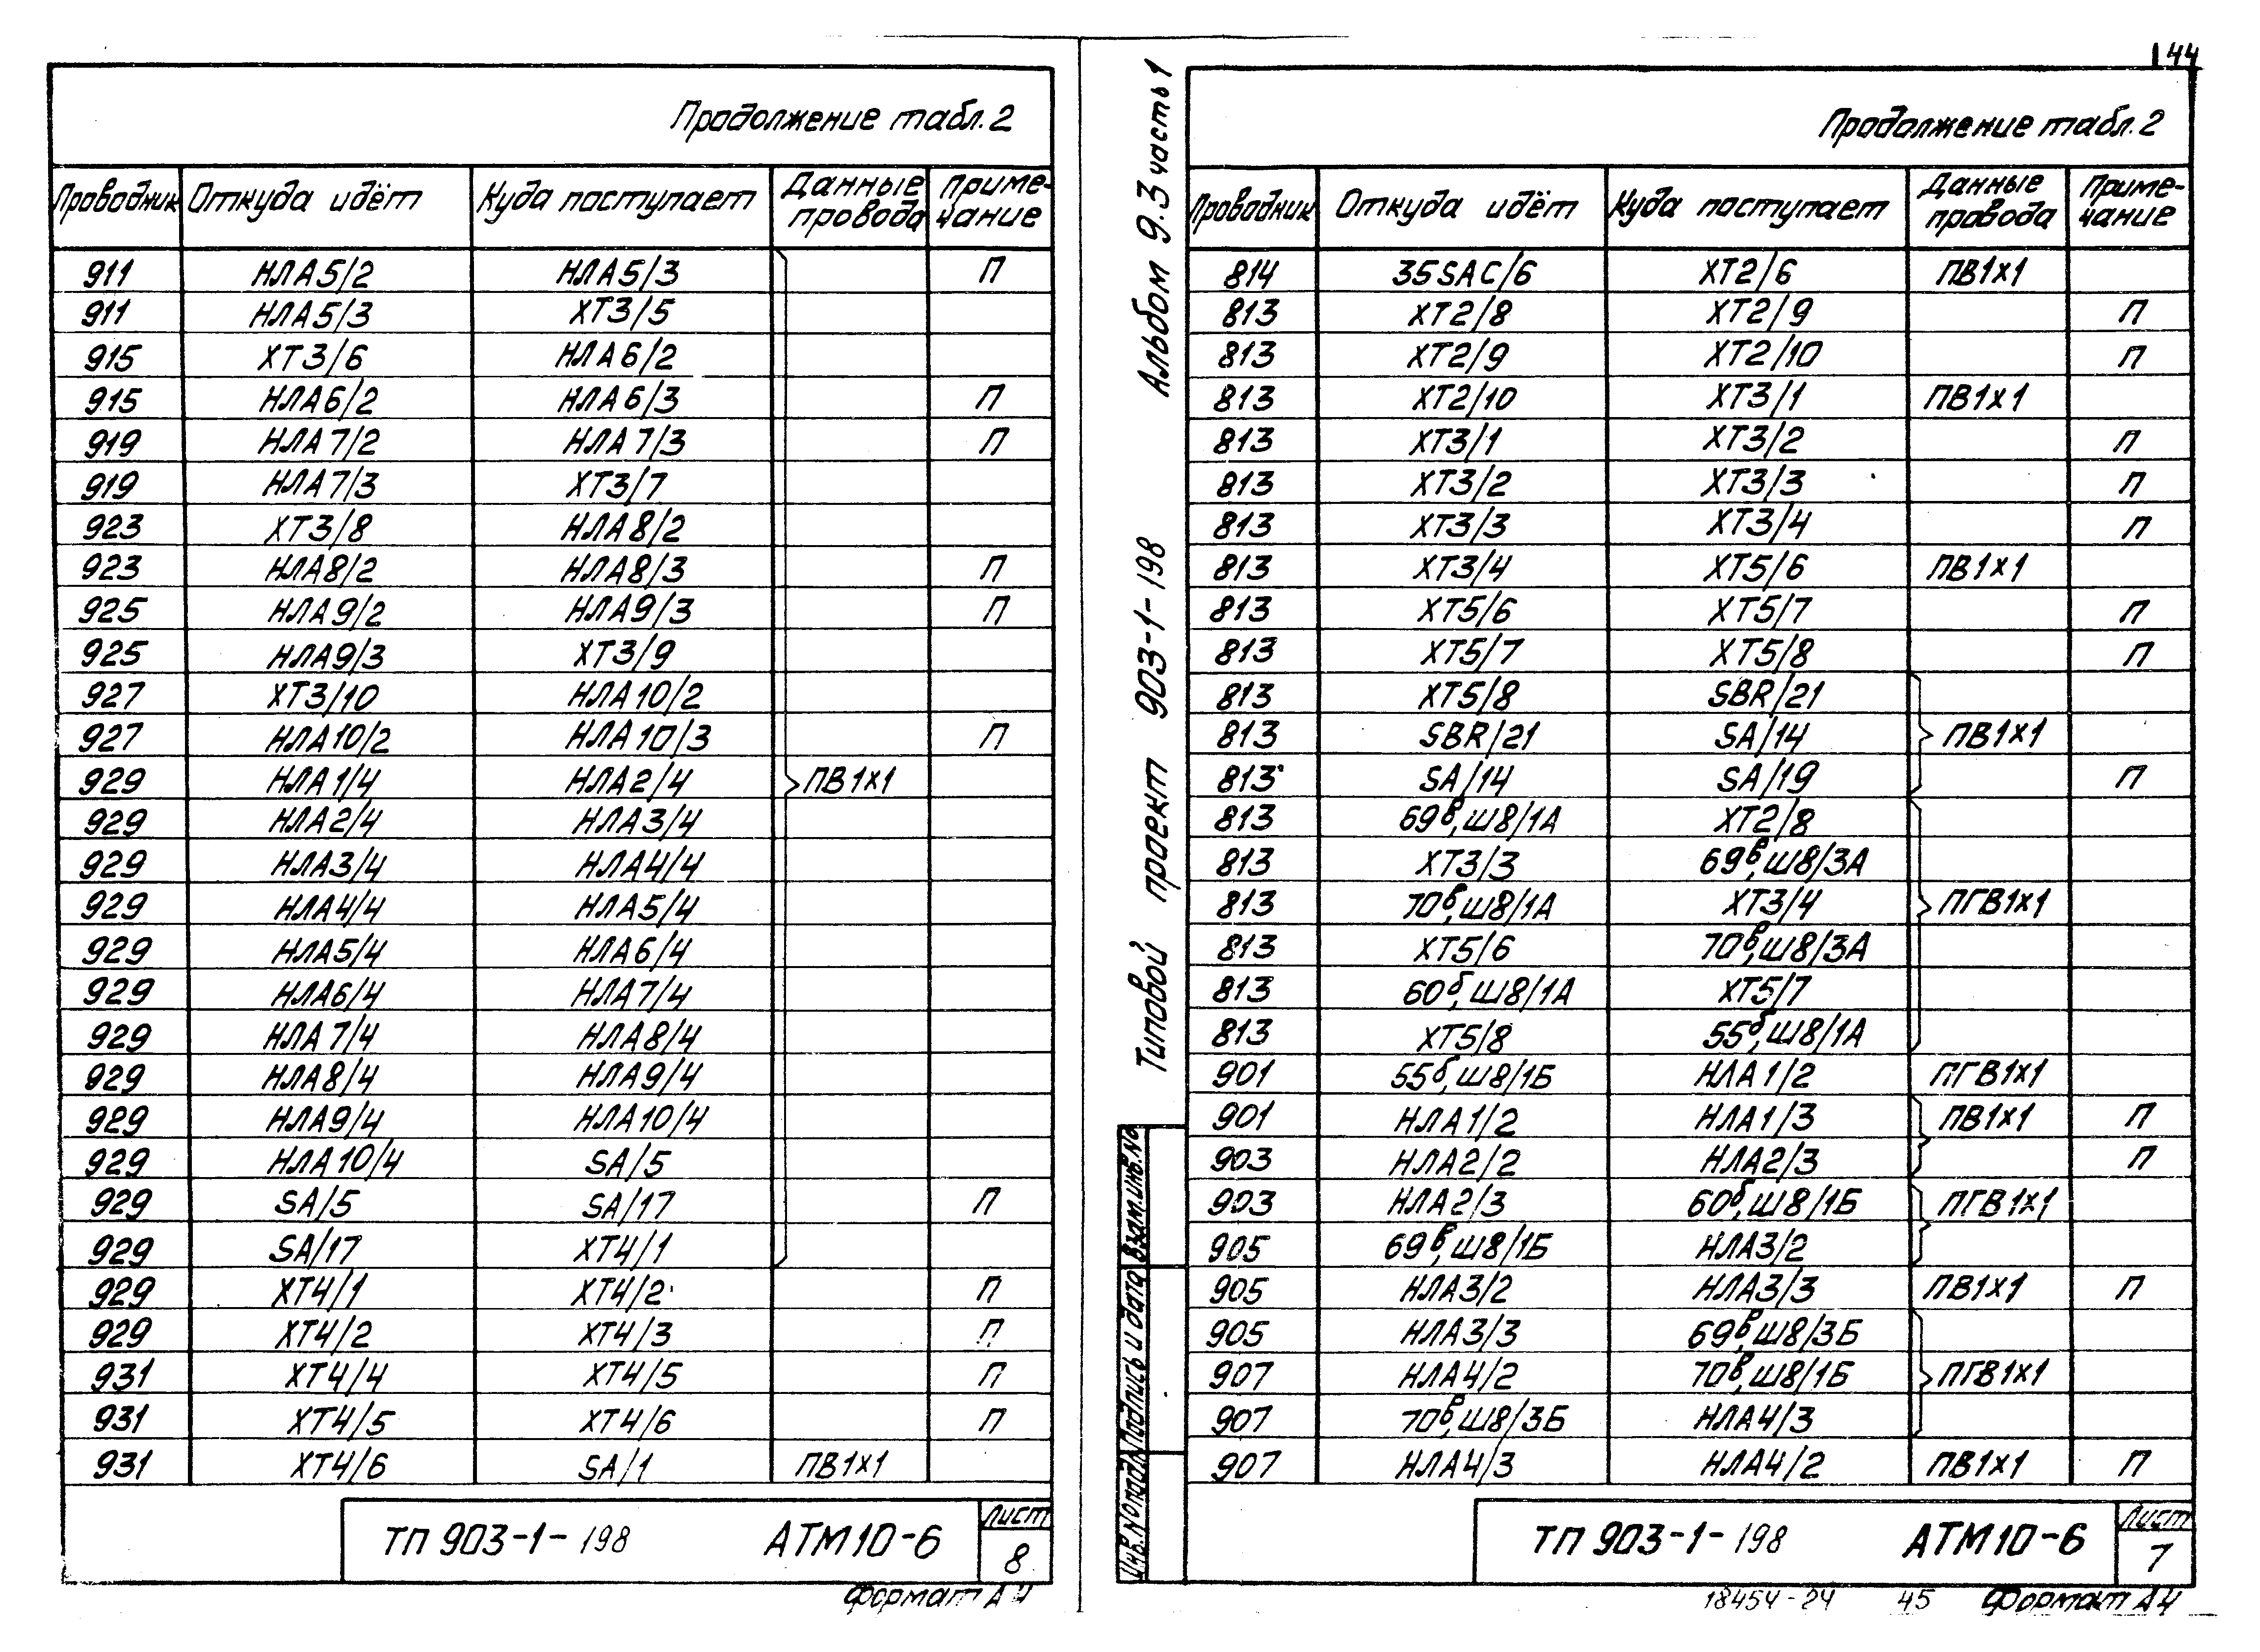 Продолжение табл. 2
Проводник Откуда идёт Куда поступает Данные провода Приме-чание
911 НЛА5/2 НЛА5/3 П
911 НЛА5/3 ХТ3/5
915 ХТ3/6 НЛА6/2
915 НЛА6/2 НЛА6/3 П
919 НЛА7/2 НЛА7/3 П
919 НЛА7/3 ХТ3/7
923 ХТ3/8 НЛА8/2
923 НЛА8/2 НЛА8/3 П
925 НЛА9/2 НЛА9/3 П
925 НЛА9/3 ХТ3/9
927 ХТ3/10 НЛА10/2
927 НЛА10/2 НЛА10/3 П
929 НЛА1/4 НЛА2/4 ПВ1х1
929 НЛА2/4 НЛА3/4
929 НЛА3/4 НЛА4/4
929 НЛА4/4 НЛА5/4
929 НЛА5/4 НЛА6/4
929 НЛА6/4 НЛА7/4
929 НЛА7/4 НЛА8/4
929 НЛА8/4 НЛА9/4
929 НЛА9/4 НЛА10/4
929 НЛА10/4 SA/5
929 SA/5 SA/17 П
929 SA/17 ХТ4/1
929 ХТ4/1 ХТ4/2 П
929 ХТ4/2 ХТ4/3 П
931 ХТ4/4 ХТ4/5 П
931 ХТ4/5 ХТ4/6 П
931 ХТ4/6 SA/1 ПВ1х1
ТП 903-1-198 АТМ10-6 Лист 8
Формат А4
144
Альбом 9.3 часть 1
Типовой проект 903-1-198
Взам.инв.№
Подпись и дата
Инв.№подл.
Продолжение табл. 2
Проводник Откуда идёт Куда поступает Данные провода Приме-чание
814 35SAC/6 ХТ2/6 ПВ1х1
813 ХТ2/8 ХТ2/9 П
813 ХТ2/9 ХТ2/10 П
813 ХТ2/10 ХТ3/1 ПВ1х1
813 ХТ3/1 ХТ3/2 П
813 ХТ3/2 ХТ3/3 П
813 ХТ3/3 ХТ3/4 П
813 ХТ3/4 ХТ5/6 ПВ1х1
813 ХТ5/6 ХТ5/7 П
813 ХТ5/7 ХТ5/8 П
813 ХТ5/8 SBR/21
813 SBR/21 SA/14 ПВ1х1
813 SA/14 SA/19 П
813 69в,Ш8/1А ХТ2/8
813 ХТ3/3 69в,Ш8/3А
813 70в,Ш8/1А ХТ3/4 ПГВ1х1
813 ХТ5/6 70в,Ш8/3А
813 60б,Ш8/1А ХТ5/7
813 ХТ5/8 55б,Ш8/1А
901 55б,Ш8/1Б НЛА1/2 ПГВ1х1
901 НЛА1/2 НЛА1/3 ПВ1х1 П
903 НЛА2/2 НЛА2/3 П
903 НЛА2/3 60б,Ш8/1Б ПГВ1х1
905 69в,Ш8/1Б НЛА3/2
905 НЛА3/2 НЛА3/3 ПВ1х1 П
905 НЛА3/3 69в,Ш8/3Б
907 НЛА4/2 70в,Ш8/1Б ПГВ1х1
907 70в,Ш8/3Б НЛА4/3
907 НЛА4/3 НЛА4/2 ПВ1х1 П
ТП 903-1-198 АТМ10-6 Лист 7
18454-24 45 Формат А4